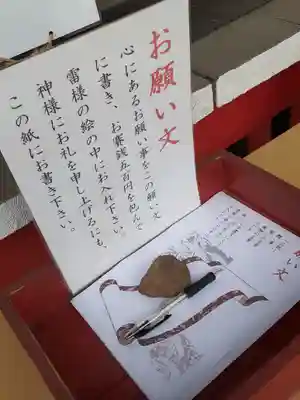 お願い文
心にあるお願い事をこの願い文
に書き、お賽銭五百円を包んで
雷様の絵の中にお入れ下さい。
神様にお礼を申し上げるにも、
この紙にお書き下さい。
願い文